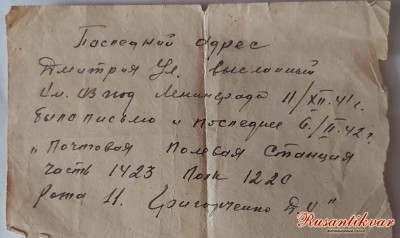 Последний адрес
Дмитрия Ул. высланный
им из под Ленинграда 11/XII-41 г.
было письмо и последнее 6/II-42 г.
„Почтовая Полевая Станция
часть 1423 Полк 1220
Рота 11. Григорченко Д И"
Rusantikvar